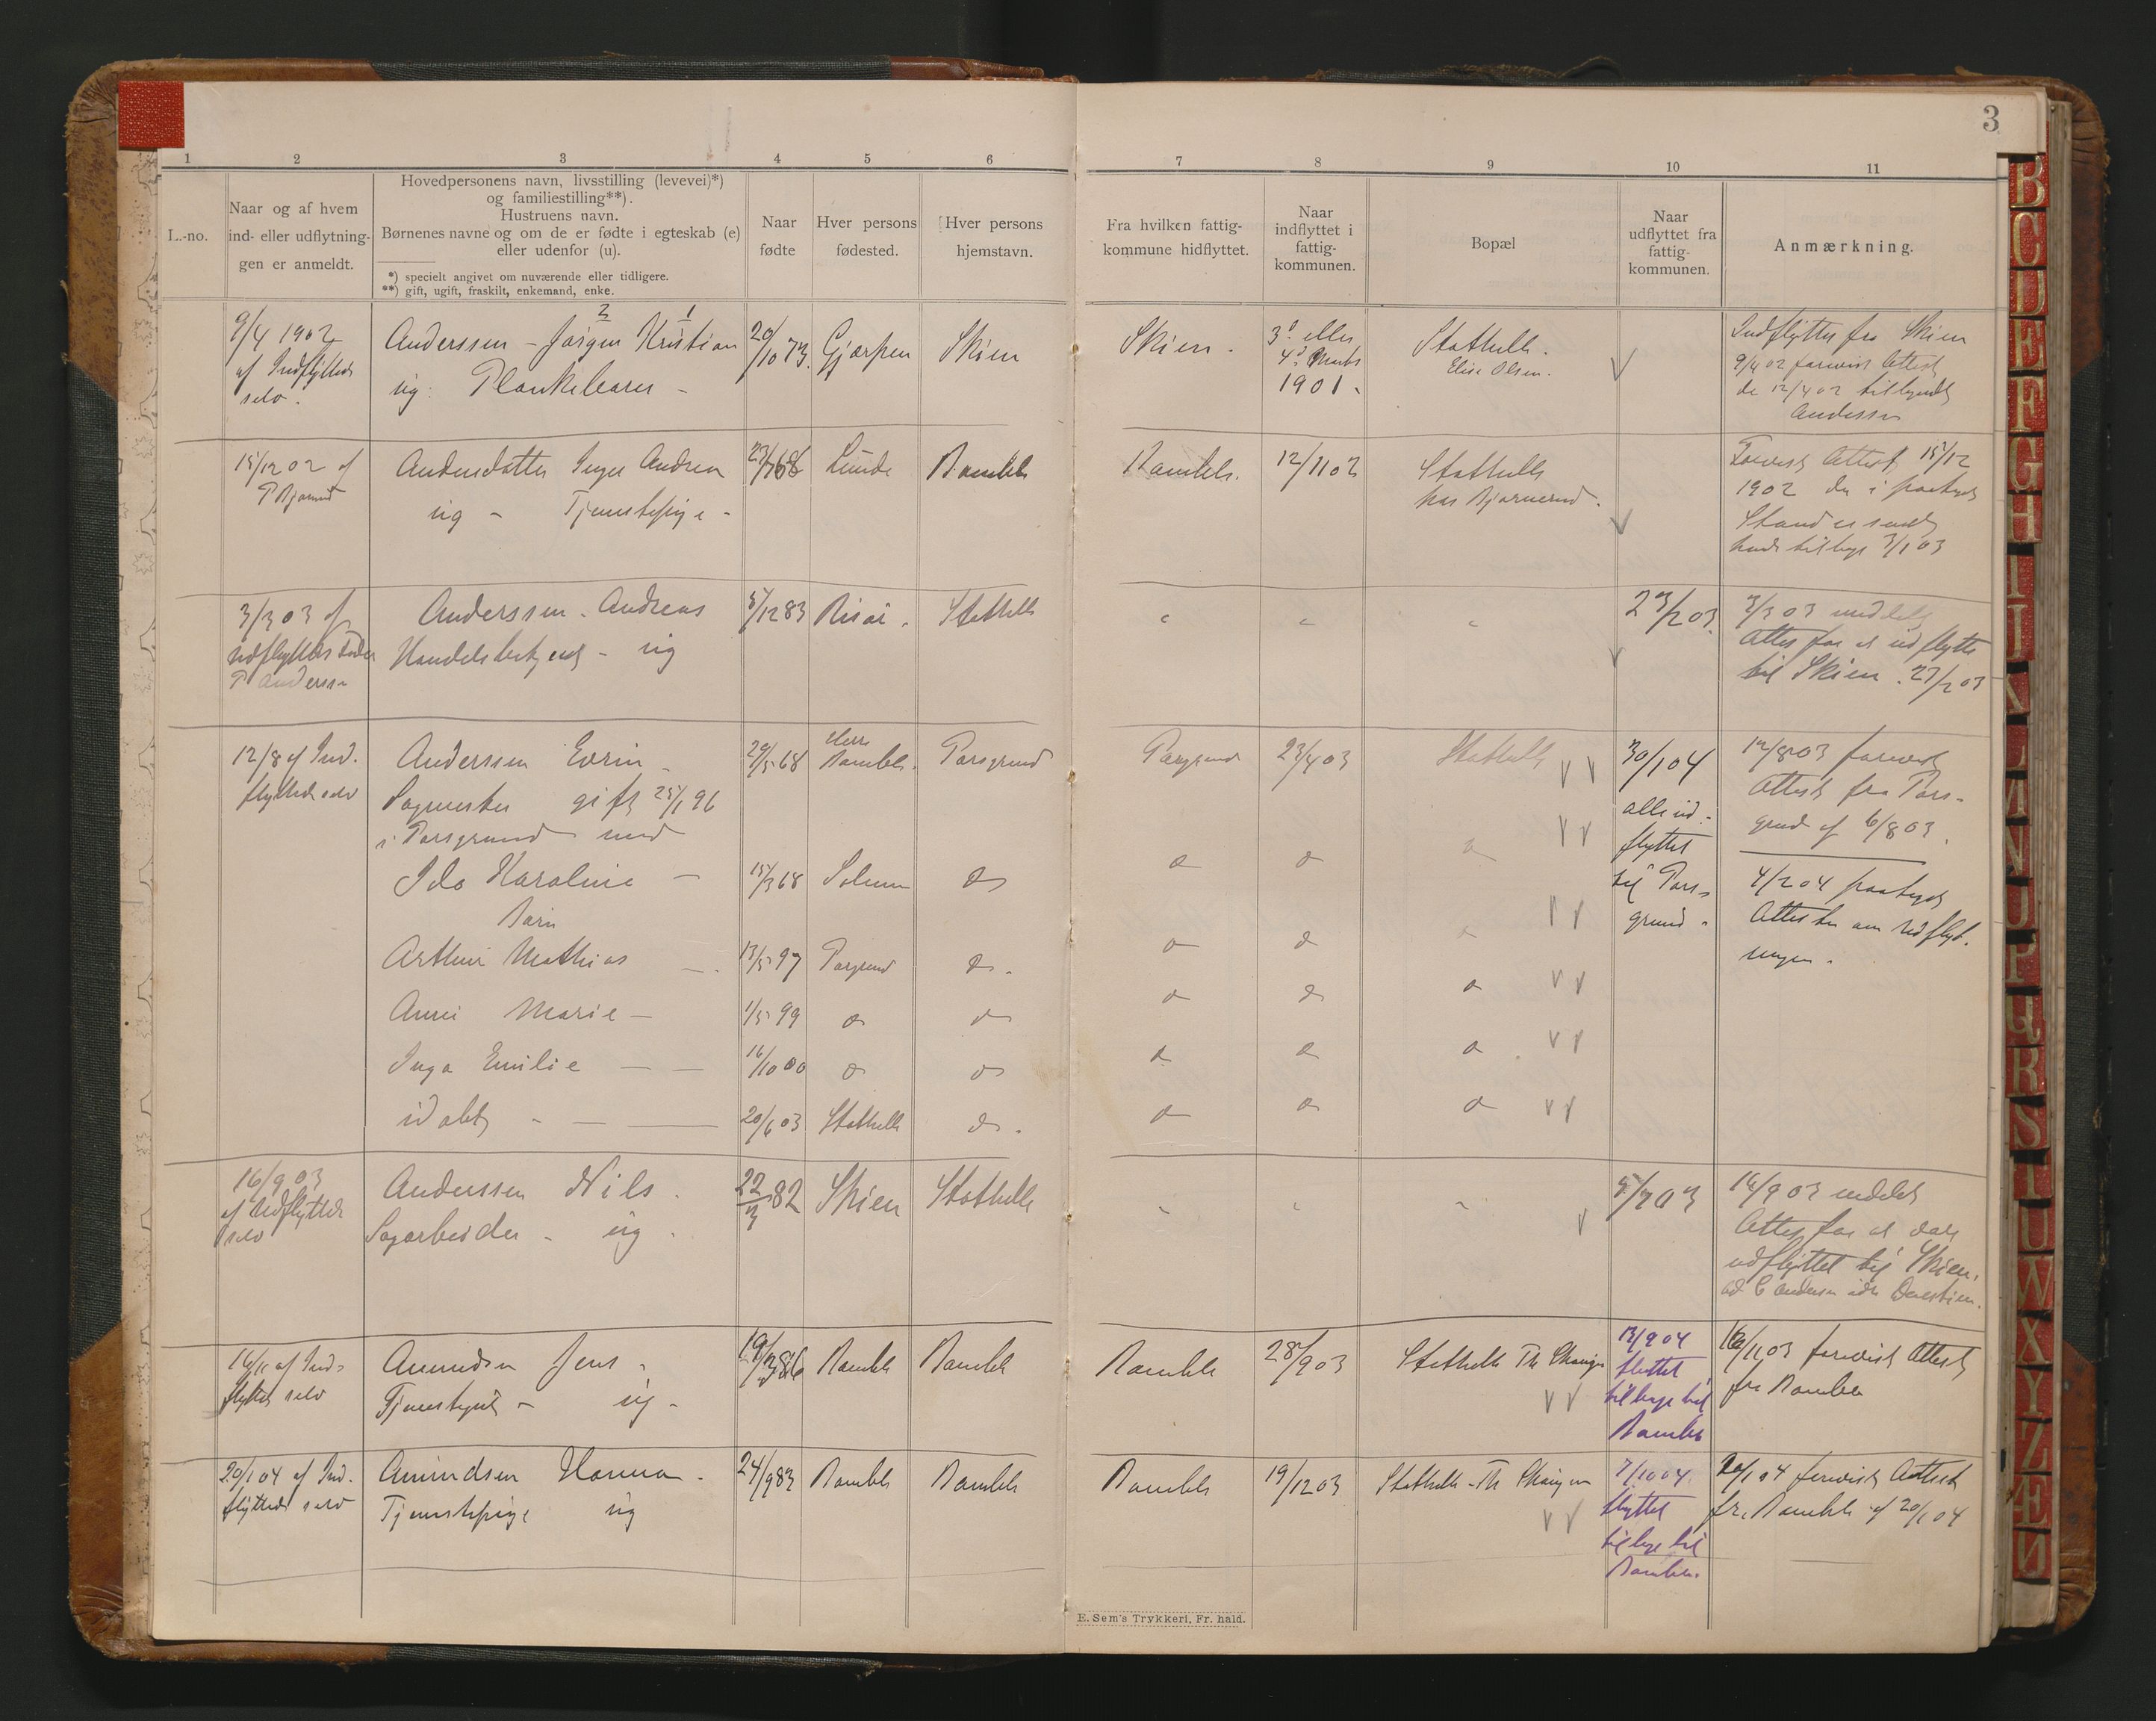 3
1 2 3 4 5 6 7 8 9 10 11
L.-no.
Naar og af hvem
ind- eller udflytnin-
gen er anmeldt.
Hovedpersonens navn, livsstilling (levevei)*)
og familiestilling**).
Hustruens navn.
Børnenes navne og om de er fødte i egteskab (e)
eller udenfor (u).
*) specielt angivet om nuværende eller tidligere.
**) gift, ugift, fraskilt, enkemand, enke.
Naar
fødte
Hver persons
fødested.
Hver persons
hjemstavn.
Fra hvilken fattig-
kommune hidflyttet.
Naar
indflyttet i
fattig-
kommunen.
Bopæl
Naar
udflyttet fra
fattig-
kommunen.
Anmærkning.
9/4 1902
af Indflyttede
selv.
2 1
Anderssen - Jørgen Kristian
ug: Plankebærer -
20/10 73.
Gjerpen
Skien
Skien.
3d eller
4d Marts
1901.
Stathelle.
Elise Olsen.
Indflyttet fra Skien
9/4 02 forevist Attest
12/4 02
Anderssen
15/12 02 af
Andersdatter Inger Andrea
ug - Tjenestepige -
Lunde
Bamble
Bamble.
12/11 02
Stathelle
hos Bjørnerud.
Forevist Attest 15/12
1902
3/1 03
3/3 03 af
udflyttedes Fader
P Anderssen
Anderssen. Andreas
Handelsbetjent - ug
5/12 83
Risør.
Stathelle
27/2 03.
3/3 03 meddelt
Attest for at udflytte
til Skien. 27/2 03
12/8 af Ind-
flyttede selv
Anderssen Evrin -
Sagmester gift 25/1 96
i Porsgrund med
29/5 68
Bamble.
Porsgrund
Porsgrund
23/4 03
Stathelle
30/1 04
alle ud-
flyttet
til Pors-
grund.
12/8 03 forevist
Attest fra Pors-
grund af 6/8 03.
4/2 04
Attester om Udflyt-
ningen.
Ida Karoline -
15/3 68
Solum
Do
Børn
Arthur Mathias -.
13/5 97
Porsgrund
Do.
Anni Marie -
1/5 99
Do
Do
Inga Emilie - -
16/10 00
Do
Do
udøbt - - -
20/6 03
Stathelle
Do.
16/9 03
af Udflyttede
selv
Anderssen Nils.
Sagarbeider - ug.
22/3 82
Skien
Stathelle
5/7 03
16/9 03 meddelt
Attest for at være
udflyttet til Skien.
16/11 af Ind-
flyttet selv
Amundsen Jens -
Tjenestegut - ug -
Bamble
Bamble
Bamble
28/9 03
Stathelle
13/9 04
flyttet
tilbage til
Bamble
16/11 03 forevist Attest
fra Bamble
20/1 04 af Ind-
flyttede selv
Amundsen Hanna.
Tjenestepige ug
24/9 83
Bamble
Bamble
Bamble
19/12 03
Stathelle
7/10 04
flyttet
tilbage til
Bamble.
20/1 04 forevist Attest
fra Bamble af 20/1 04
E. Sem's Trykkeri, Fr. hald.
B
C
D
E
F
G
H
I
J
K
L
M
N
O
P
Q
R
S
T
U
W
X
Y
Z
Æ